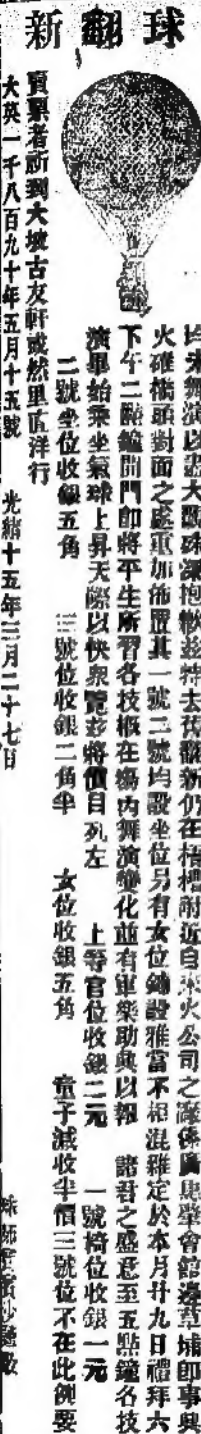 球翻新
舞演以盡大觀殊深抱歉茲特去舊翻新仍在梧槽附近自來火公司之隣係廣惠肇會館邊草埔即事興
火礶橋頭對面之處重加佈置其一號二號均設坐位另有女位鋪設雅當不相混雜定於本月廿九日禮拜六
下午二點鐘開門即將平生所習各技概在場內舞演變化並有軍樂助興以報 諸君之盛意至五點鐘各技
演畢始乘坐氣球上昇天際以快衆覽茲將價目列左 上等官位收銀二元 一號椅位收銀一元
二號坐位收銀五角 三號位收銀二角半 女位收銀五角 童子減收半價三號位不在此例要
買票者祈到大坡古友軒或然里直洋行
大英一千八百九十年五月十五號 光緒十五年三月二十七日 球師